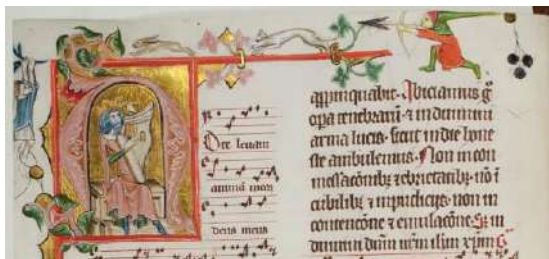 Dte leuaui
animā meā
deus meus
appinquabit. Abiciamus gͦ
opa tenebrarū ⁊ induimini
arma lucis. sicut in die hone
ste ambulemus. Non in com
messacōnibꝫ ⁊ ebrietatibꝫ. nō ī
cubilibꝫ ⁊ inpudicitijs. non in
contencōne ⁊ emulacōne. Sꝫ in
duimini dūm nrm̄ ihm̄ xpm̄